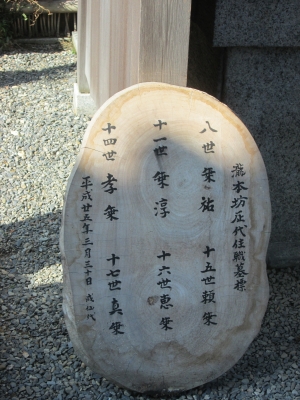 瀧本坊歴代住職墓標
八世 乗祐 十五世頼乗
十一世 乗淳 十六世恵乗
十四世 孝乗 十七世真乗
平成廿五年三月三十日